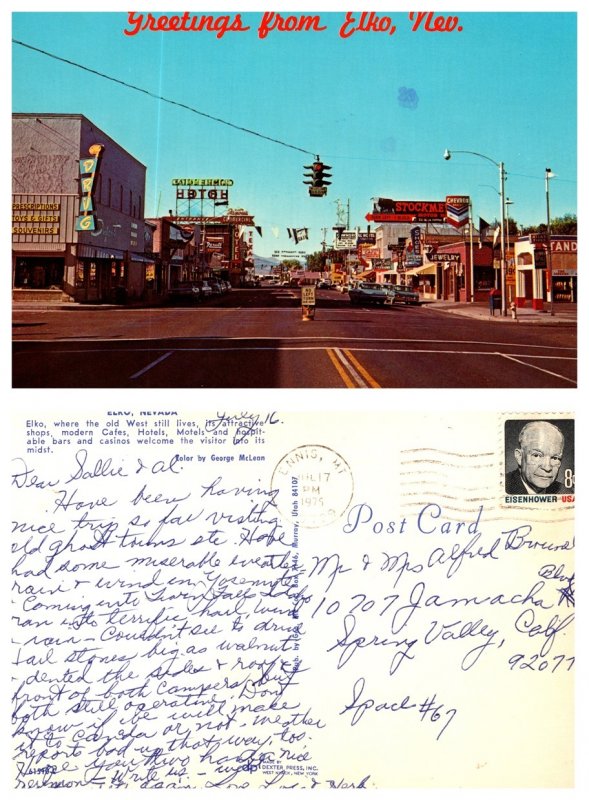 Greetings from Elko, Nev.
DRUG
PRESCRIPTIONS
TOYS & GIFTS
SOUVENIRS
COMMERCIAL
HOTEL
STOCKMEN
MOTOR HOTEL
CHEVROLET
JEWELRY
STAND
ELKO, NEVADA
Elko, where the old West still lives, its attractive
shops, modern Cafes, Hotels, Motels and hospit-
able bars and casinos welcome the visitor into its
midst.
Color by George McLean
July 16.
Dear Sallie & Al.
Have been having
nice trip so far visiting
old ghost towns etc. Have
had some miserable weather
rain & wind in Yosemite
Coming into Twin Falls Idaho
ran into terrific hail, wind
- rain - Couldn't see to drive
Hail stones big as walnuts
- dented the sides & roofing
front of both Campers, but
both still operative. Don't
know if we will make
it to Canada or not - weather
report bad up that way, too.
Hope you two have a nice
- Write us -
again Love
ENNIS, MT
JUL 17
PM
1975
8¢
EISENHOWER·USA
Post Card
Mr & Mrs Alfred Browne
10707 Jamacha Blvd
Spring Valley, Calif
92077
Space #67
Murray, Utah 84107
MADE BY
DEXTER PRESS, INC.
WEST NYACK, NEW YORK